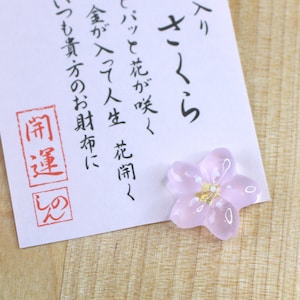 入り
さくら
パッと花が咲く
金が入って人生 花開く
いつも貴方のお財布に
開運
のん
しん